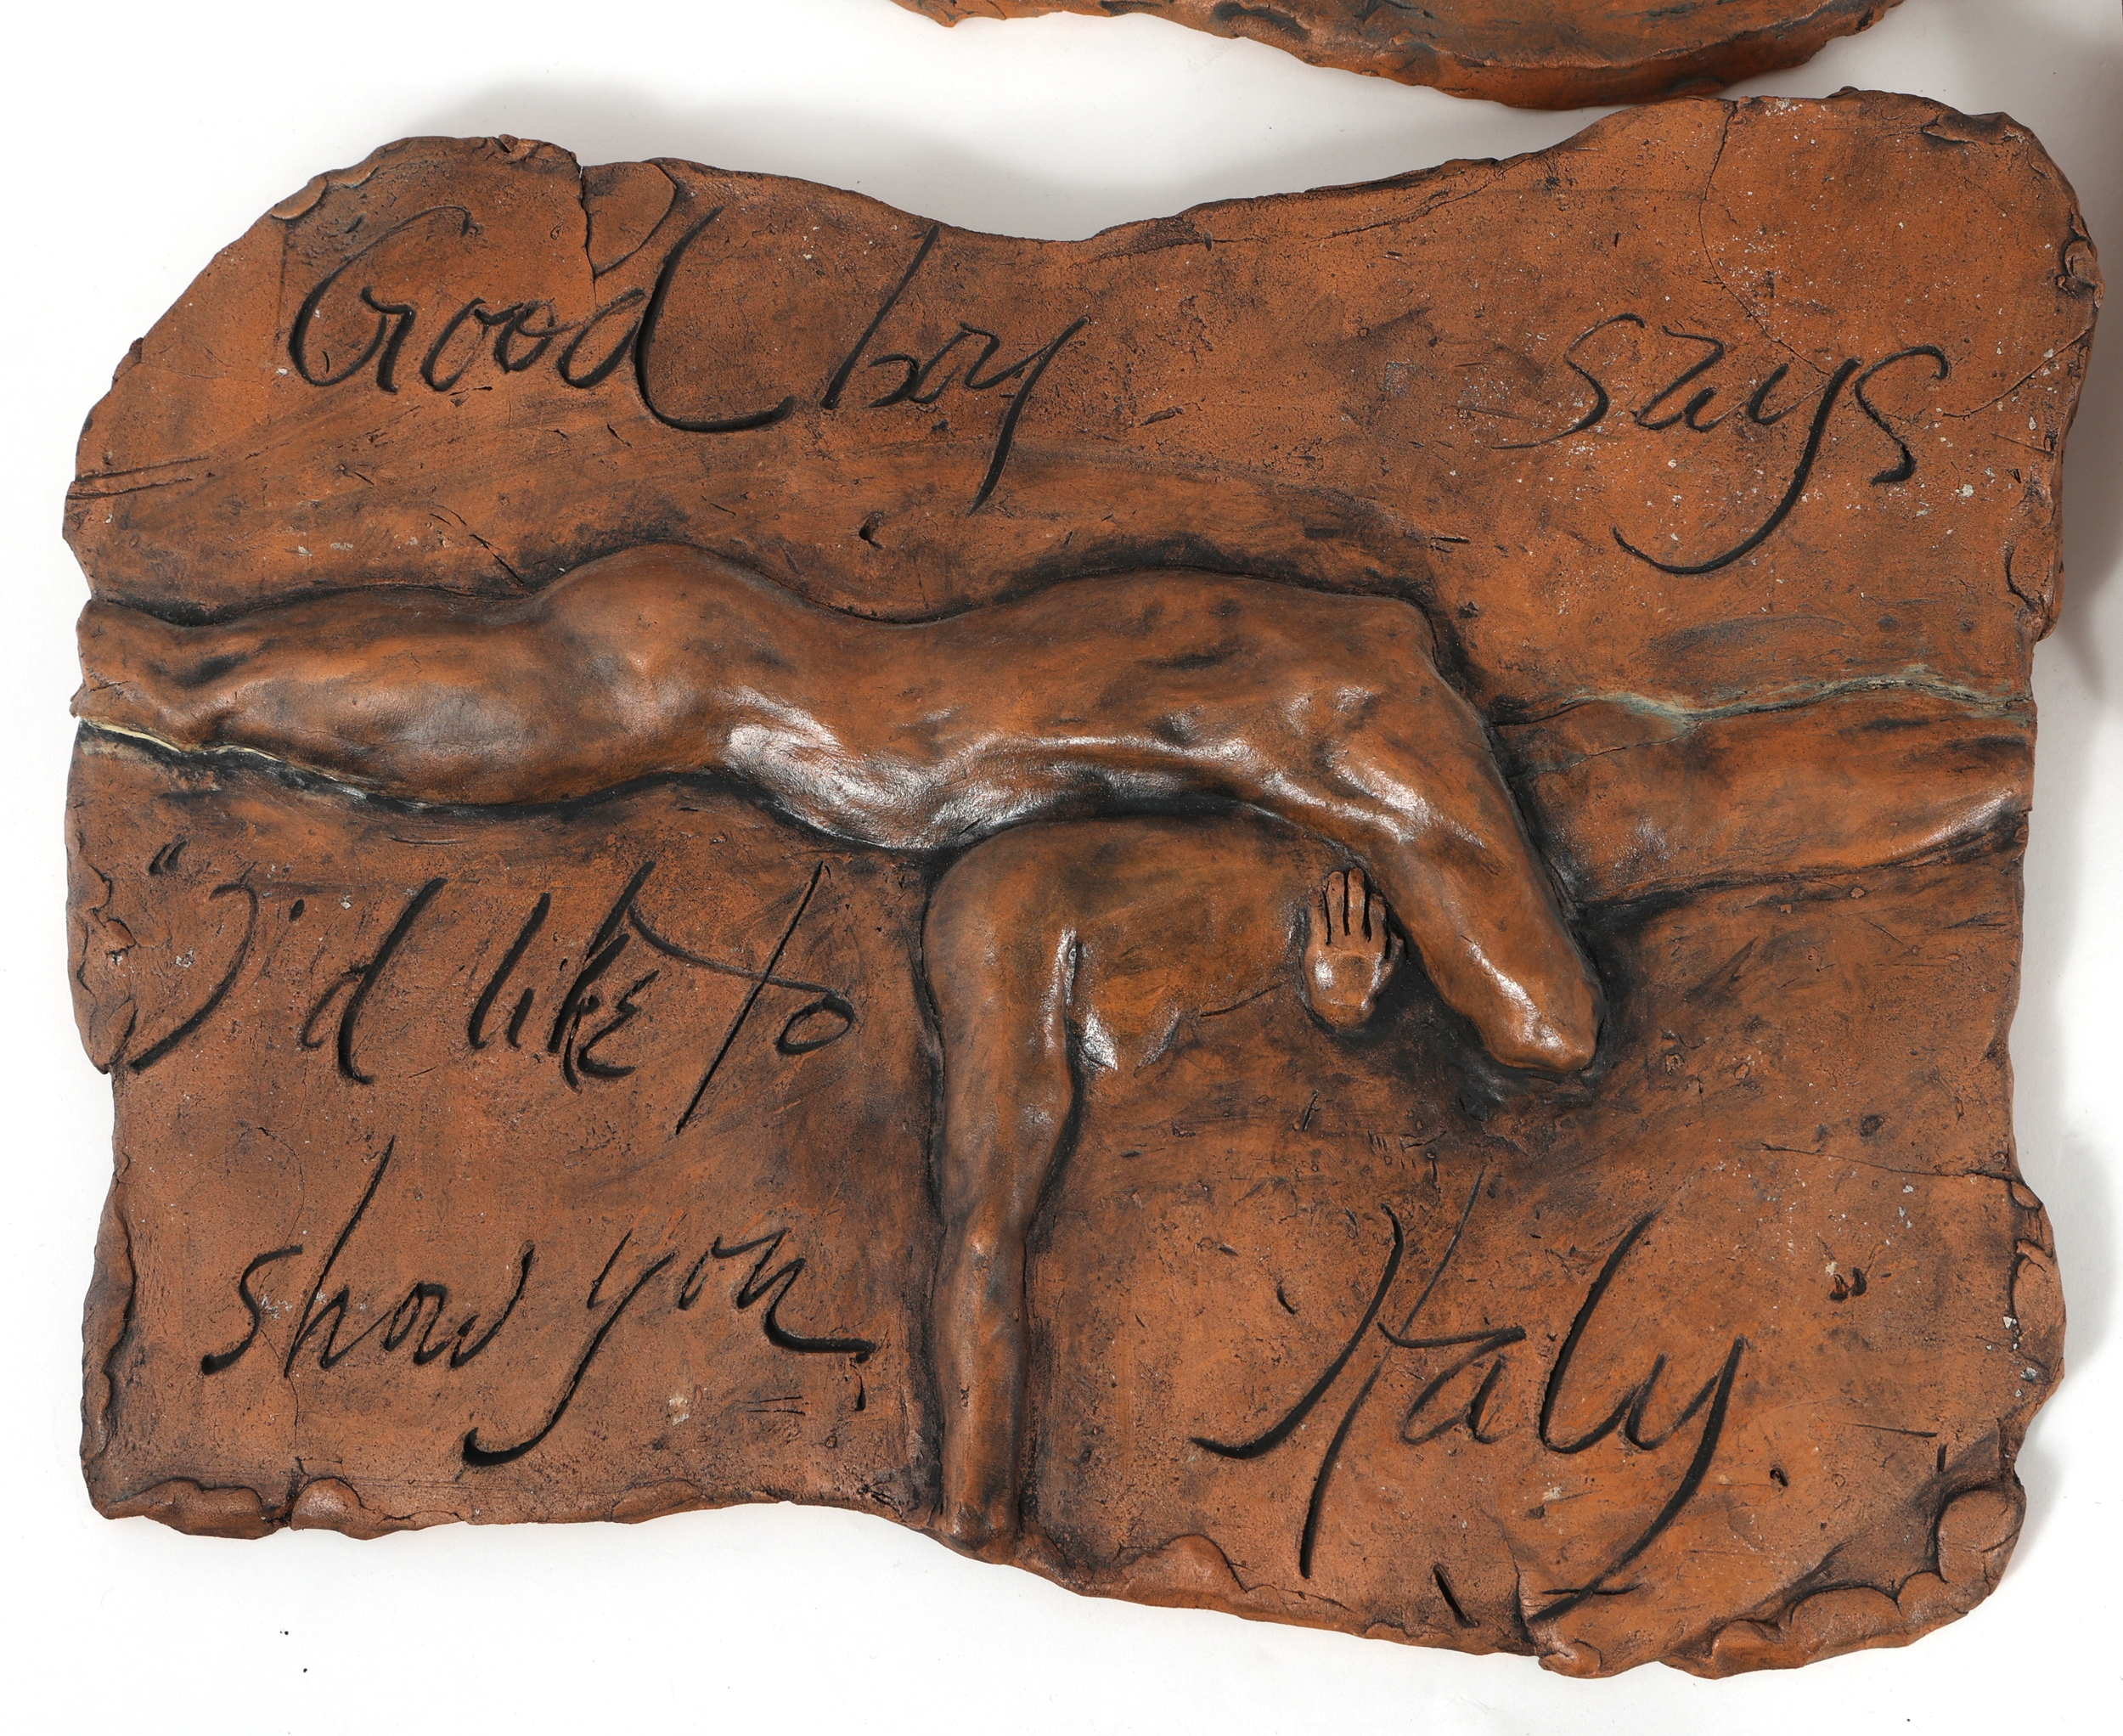 Good boy says
"I'd like to
show you Italy"